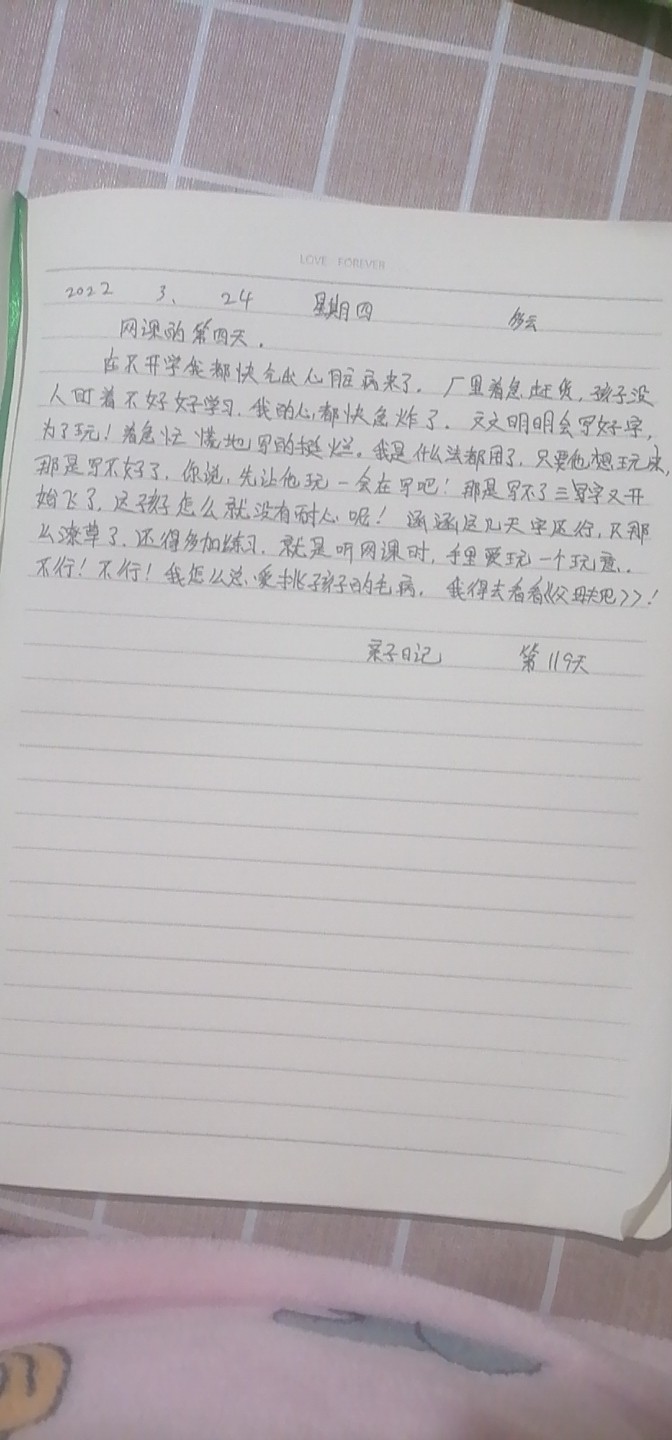 LOVE FOREVER
2022 3、 24 星期四 多云
网课的第四天.
在不开学我都快气出心脏病来了. 厂里着急赶货, 孩子没
人盯着不好好学习. 我的心都快急炸了. 文文明明会写好字,
为了玩! 着急忙慌地写的挺烂。我是什么法都用了, 只要他想玩,
那是写不好了. 你说, 先让他玩一会在写吧! 那是写不了三字又开
始飞了. 这孩子怎么就没有耐心呢! 涵涵这几天字还行, 只那
么潦草了. 还得多加练习. 就是听网课时, 手里爱玩一个玩意.
不行! 不行! 我怎么总爱挑孩子的毛病. 我得去看看《父母规》!
亲子日记 第119天